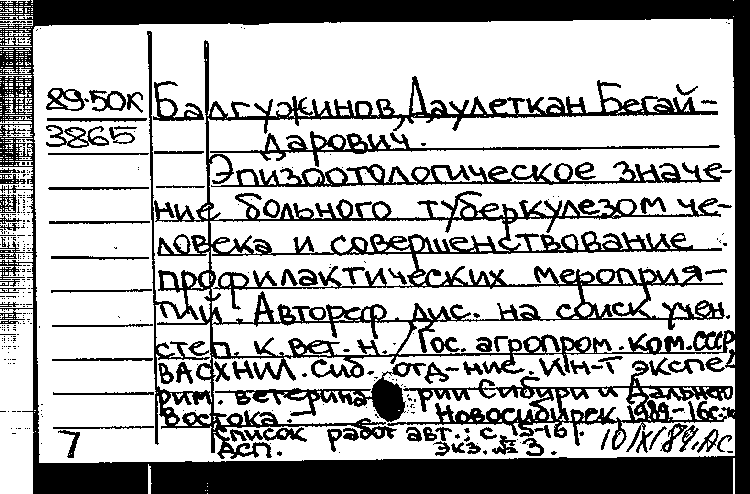 89-50К
3865
Балгужинов, Даулеткан Бегай-
дарович.
Эпизоотологическое значе-
ние больного туберкулезом че-
ловека и совершенствование
профилактических мероприя-
тий. Автореф. дис. на соиск. учен.
степ. к. вет. н. / Гос. агропром. ком. СССР
ВАСХНИЛ. Сиб. отд-ние. Ин-т экспе-
рим. ветеринарии Сибири и Дальнего
Востока. - Новосибирск, 1989.-16с.;
Список работ авт.: с. 15-16/.
7 АСП. экз. № 3. 10/XI 89. АС